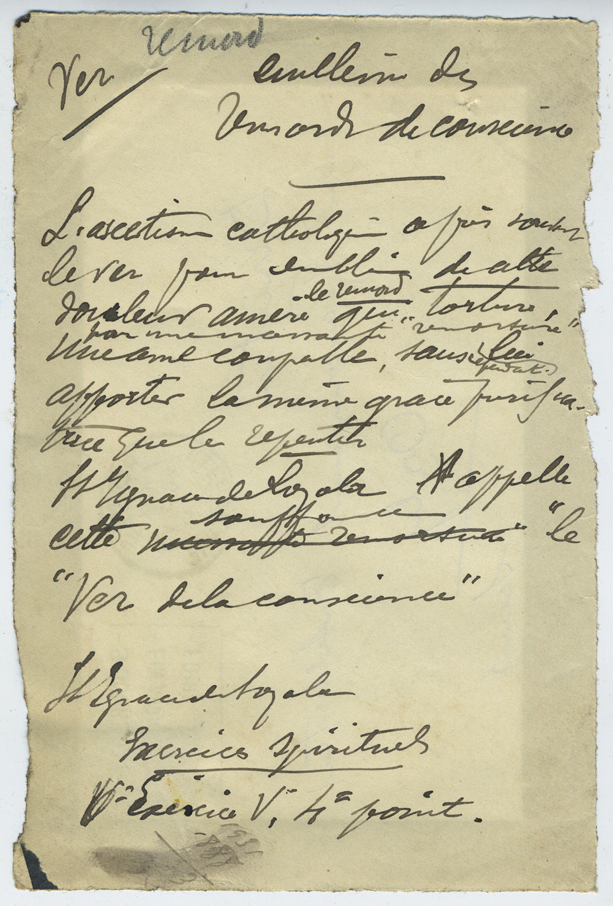 remord
Ver emblème des
remords de conscience
L'ascétisme catholique a pris souvent
le ver pour emblème de cette
douleur amère
le remord qui torture,
par une incessante "remorsure"
une âme coupable, sans lui
apporter la même grâce purifica-
trice que le repentir
St Ignace de Loyola appelle
souffrance
cette incessante remorsure "le
"Ver de la conscience"
St Ignace de Loyola
Exercices Spirituels
Exercice V, 4e point.